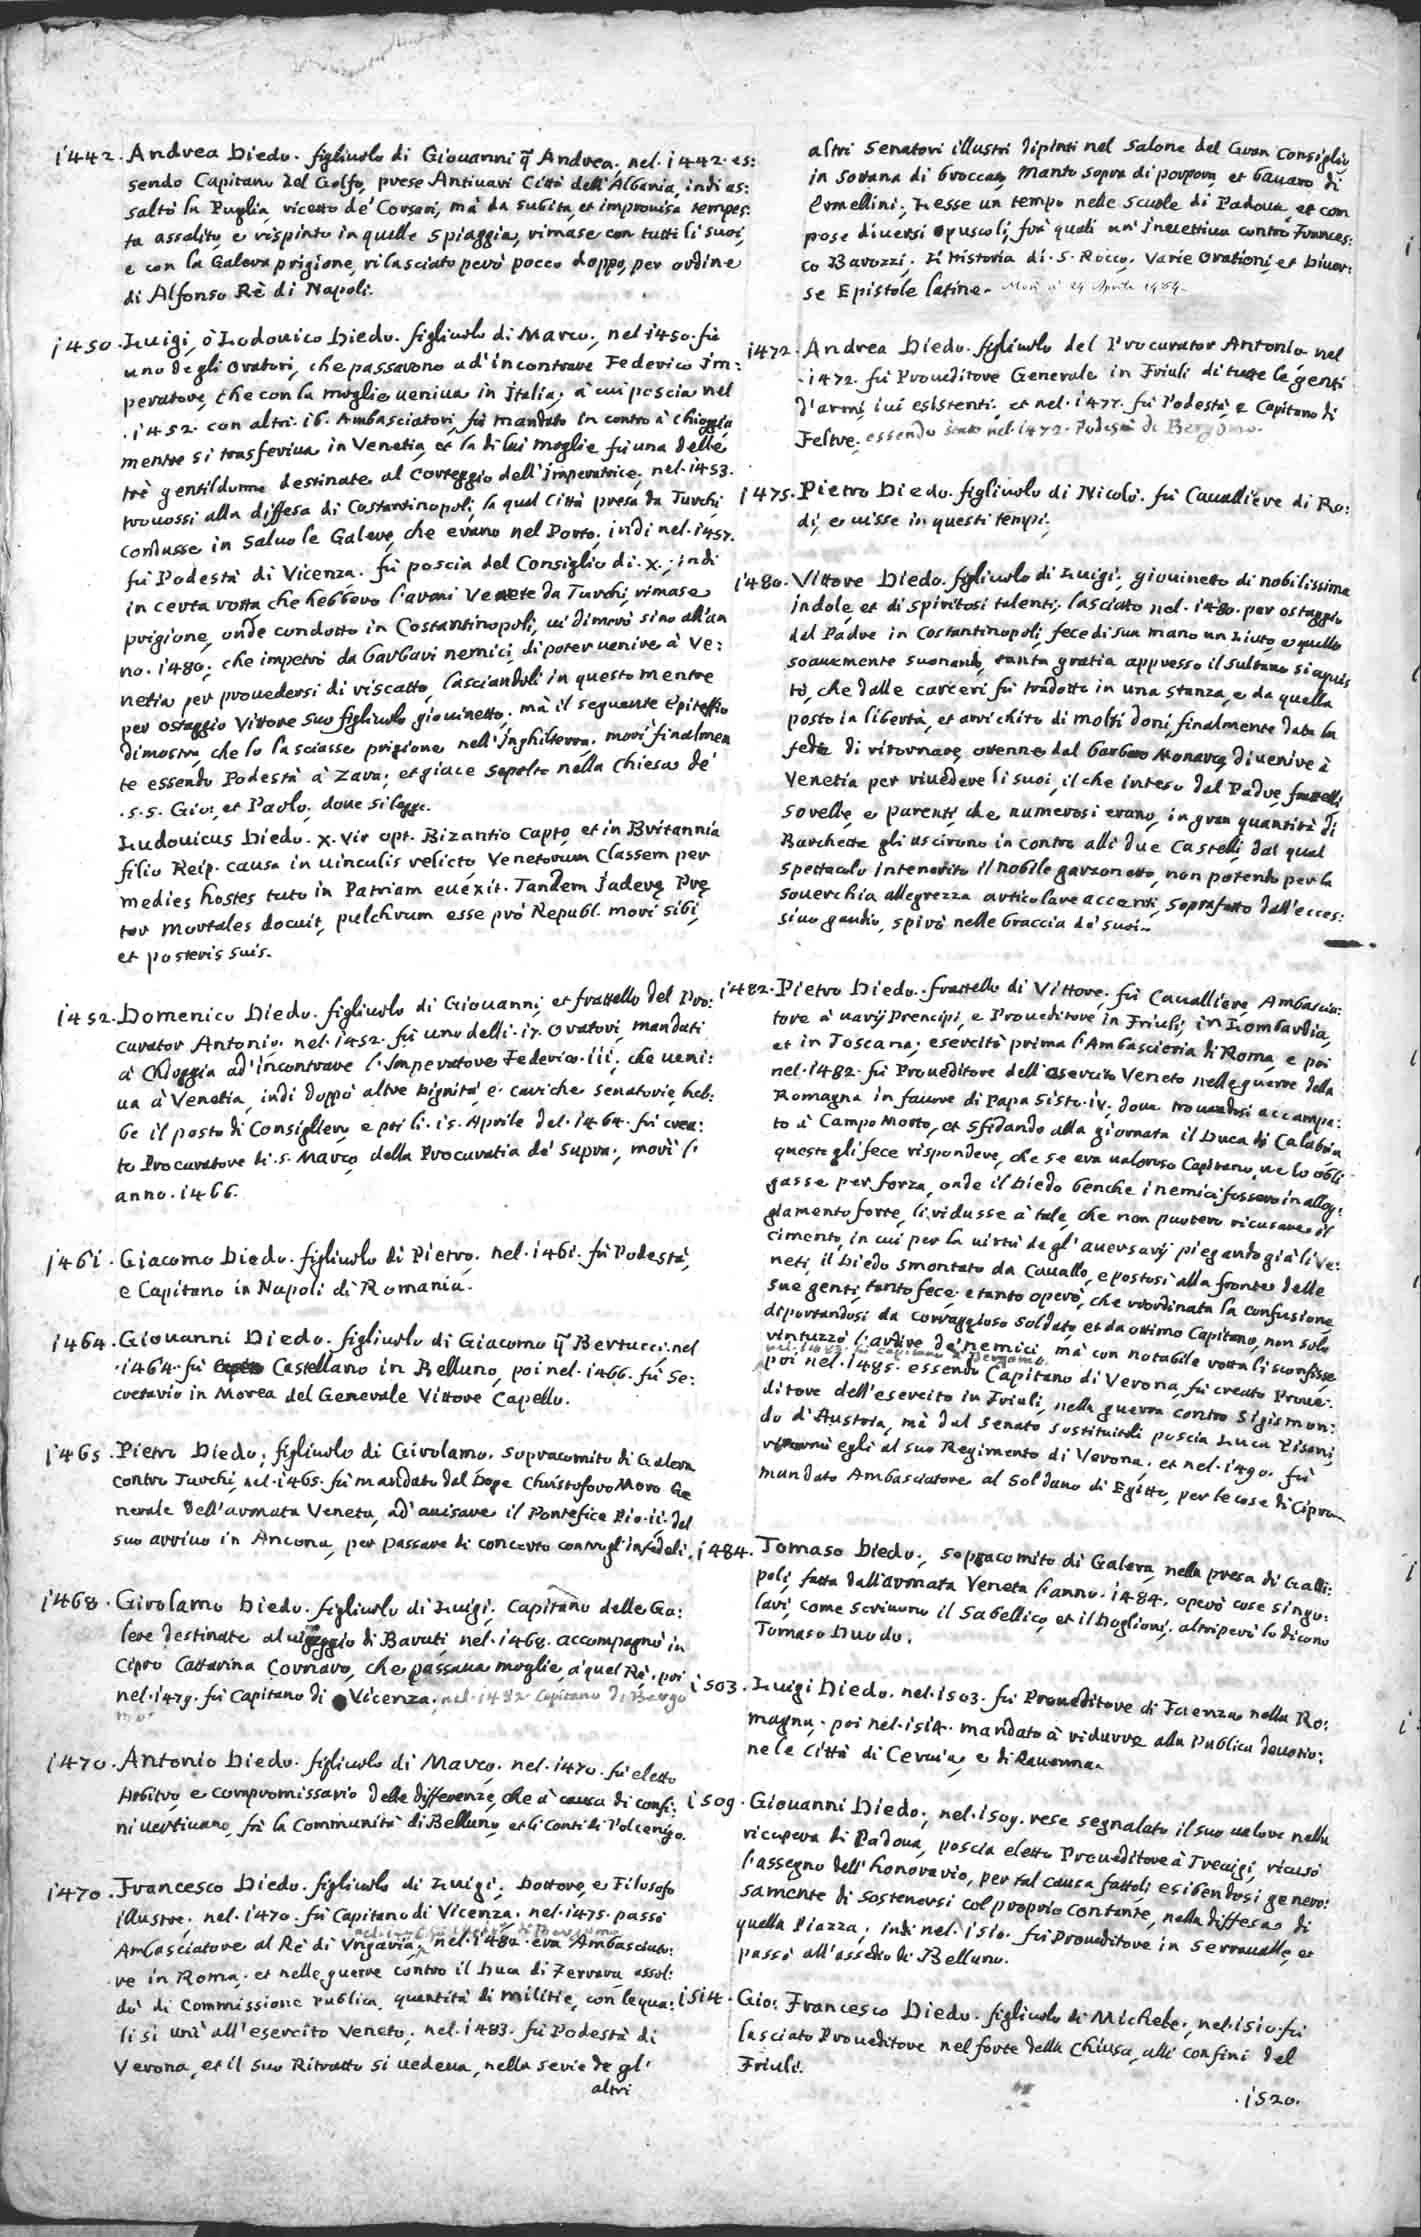 i442. Andrea Diedo. figliuolo di Giouanni q̃ Andrea, nel. i442. es:
sendo Capitano del Golfo, prese Antiuari Città dell'Albania, indi as:
saltò la Puglia, ricetto de' Corsari, mà da subita, et improuisa tempes:
ta assalito, e rispinto in quelle spiaggia, rimase con tutti li suoi,
e con la Galera prigione, rilasciato però pocco doppo, per ordine
di Alfonso Rè di Napoli.
i450. Luigi, ò Lodouico Diedo. figliuolo di Marco, nel. i450. fù
uno degli Oratori, che passarono ad'incontrare Federico Im:
peratore, che con la moglie ueniua in Italia, à cui poscia nel
.i452. con altri. i6. Ambasciatori, fù mandato in contro à Chioggia
mentre si trasferiua in Venetia, et la di lui moglie fù una delle
trè gentildonne destinate al Corteggio dell'Imperatrice, nel. i453.
trouossi alla diffesa di Costantinopoli, la qual Città presa da Turchi,
condusse in saluo le Galere, che erano nel Porto, indi nel. i457.
fù Podestà di Vicenza. fù poscia del Consiglio di. X.; indi
in certa rotta che hebbero l'armi Venete da Turchi, rimase
prigione, onde condotto in Costantinopoli, ui dimorò sino all'an
no. i480. che impetrò da barbari nemici, di poter uenire à Ve:
netia per prouedersi di riscatto, lasciandoli in questo mentre
per ostaggio Vittore suo figliuolo giouinetto, mà il seguente Epitaffio
dimostra, che lo lasciasse prigione nell'Inghilterra. morì finalmen
te essendo Podestà à Zara, et giace sepolto nella Chiesa de'
.s.s. Gio:, et Paolo, doue si legge.
Ludouicus Diedo. X. Vir opt. Bizantio Capto, et in Britannia
filio Reip. causa in uinculis relicto, Venetorum Classem per
medies hostes tuto in Patriam euexit. Tandem Jaderę Prę
tor mortales docuit, pulchrum esse prò Republ. mori sibi,
et posteris suis.
i452. Domenico Diedo. figliuolo di Giouanni, et frattello del Pro:
curator Antonio. nel. i452. fù uno delli. i7. Oratori, mandati
à Chioggia ad'incontrare l'Imperatore Federico. iii, che ueni:
ua à Venetia, indi doppò altre Dignità, e cariche senatorie, heb:
be il posto di Consigliero, e poi li. i5. Aprile del. i464. fù crea:
to Procuratore di. s. Marco, della Procuratia de' supra; morì l'
anno. i466.
i46i. Giacomo Diedo. figliuolo di Pietro. nel. i46i. fù Podestà,
e Capitano in Napoli di Romania.
i464. Giouanni Diedo. figliuolo di Giacomo q̃ Bertucci, nel
.i464. fù Castellano in Belluno, poi nel. i466. fù Se:
cretario in Morea del Generale Vittore Capello.
i465. Pietro Diedo, figliuolo di Girolamo. Sopracomito di Galera
contro Turchi, nel. i465. fù mandato dal Doge Christoforo Moro Ge
nerale dell'armata Veneta, ad'auisare il Pontefice Pio. ii. del
suo arriuo in Ancona, per passare di concerto contro gl'infedeli.
i468. Girolamo Diedo. figliuolo di Luigi. Capitano delle Ga:
lere destinate al uiaggio di Baruti nel. i468. accompagnò in
Cipro Cattarina Cornaro, che passaua moglie, à quel Rè, poi
nel. i479. fù Capitano di Vicenza. nel. i482 Capitano di Berga
mo.
i470. Antonio Diedo. figliuolo di Marco, nel. i470. fù eletto
Arbitro, e compromissario delle differenze, che à causa di confi:
ni uertiuano, frà la Communità di Belluno, et li Conti di Polcenigo.
i470. Francesco Diedo. figliuolo di Luigi. Dottore, e Filosofo
illustre. nel. i470. fù Capitano di Vicenza. nel. i475. passò
Ambasciatore al Rè di Vngaria, nel. i482. era Ambasciato:
re in Roma, et nelle guerre contro il Duca di Ferrara, assol:
dò di Commissione Publica, quantità di militie, con lequa:
li si unì all'esercito Veneto, nel. i483. fù Podestà di
Verona, et il suo Ritratto si uedeua, nella serie de gl'
altri
altri Senatori illustri dipinti nel Salone del Gran Consiglio
in sottana di broccato, Manto sopra di porpora, et bauaro di
Ermellini. Lesse un tempo nelle scuole di Padoua, et com
pose diuersi opuscoli, frà quali un'inuettiua contro Frances:
co Barozzi. L'Historia di. S. Rocco. Varie Orationi, et Diuer:
se Epistole latine. Morì à 24 Aprile 1484.
i472. Andrea Diedo. figliuolo del Procurator Antonio nel
.i472. fù Proueditore Generale in Friuli di tutte le genti
d'armi iui esistenti, et nel. i477. fù Podestà, e Capitano di
Feltre. essendo stato nel. 1472. Podestà di Bergomo.
i475. Pietro Diedo. figliuolo di Nicolò. fù Caualliere di Ro:
di, e uisse in questi tempi.
i480. Vittore Diedo. figliuolo di Luigi, giouinetto di nobilissima
indole, et di spiritosi talenti, lasciato nel. i480. per ostaggio
dal Padre in Costantinopoli, fece di sua mano un Liuto, e quello
soauemente suonando, tanta gratia appresso il sultano si aquis
tò, che dalle carceri fù tradotto in una stanza, e da quella
posto in libertà, et arrichito di molti doni, finalmente data la
fede di ritornare, ottenne dal barbaro Monarca, di uenire à
Venetia per riuedere li suoi, il che inteso dal Padre, frattelli
sorelle, e parenti, che numerosi erano, in gran quantità di
Barchette gli uscirono in contro alli due Castelli, dal qual
spettacolo intenerito il nobile garzonetto, non potendo per la
souerchia allegrezza articolare accenti, soprafatto dall'ecces:
siuo gaudio, spirò nelle braccia de' suoi.
i482. Pietro Diedo. frattello di Vittore. fù Caualliere, Ambascia:
tore à uarij Prencipi, e Proueditore in Friuli, in Lombardia,
et in Toscana, esercitò prima l'Ambascieria di Roma, e poi
nel. i482. fù Proueditore dell'esercito Veneto nelle guerre della
Romagna in fauore di Papa Sisto. iv. doue trouandosi accampa:
to à Campo Morto, et sfidando alla giornata il Duca di Calabria
questo gli fece rispondere, che se era ualoroso Capitano, ue lo obli
gasse per forza, onde il Diedo benche i nemici fossero in allog:
giamento forte, li ridusse à tale, che non puotero ricusare il
cimento, in cui per la uirtù de gl'auersarij piegando già li Ve:
neti, il Diedo smontato da Cauallo, e postosi alla fronte delle
sue genti, tanto fece, e tanto operò, che riordinata la confusione
diportandosi da corraggioso soldato, et da ottimo Capitano, non solo
rintuzzò l'ardire de'nemici, mà con notabile rotta li sconfisse,
nel. 1483. fù Capitano à Bergomo.
poi nel. i485. essendo Capitano di Verona, fù creato Proue:
ditore dell'esercito in Friuli, nella guerra contro Sigismon:
do d'Austria, mà dal Senato sostituitoli poscia Luca Pisani,
ritornò egli al suo Regimento di Verona, et nel. i490. fù
mandato Ambasciatore al Soldano di Egitto, per le cose di Cipro
i484. Tomaso Diedo, sopracomito di Galera, nella presa di Galli:
poli, fatta dall'armata Veneta l'anno. i484. operò cose singu:
lari, come scriuono il Sabellico, et il Doglioni, altri però lo dicono
Tomaso Duodo.
i503. Luigi Diedo. nel. i503. fù Proueditore di Faenza nella Ro:
magna, poi nel. i5i4. mandato à ridurre alla Publica deuotio:
ne le Città di Ceruia, e di Rauenna.
i509. Giouanni Diedo, nel. i509. rese segnalato il suo ualore nella
ricupera di Padoua, poscia eletto Proueditore à Treuigi, ricusò
l'assegno dell'honorario, per tal causa fattoli esibendosi genero:
samente di sostenersi col proprio contante, nella diffesa di
quella Piazza, indi nel. i5i0. fù Proueditore in Serraualle, et
passò all'assedio di Belluno.
i5i4. Gio: Francesco Diedo. figliuolo di Michele, nel. i5i0. fù
lasciato Proueditore nel forte della Chiusa, alli confini del
Friuli.
.i520.